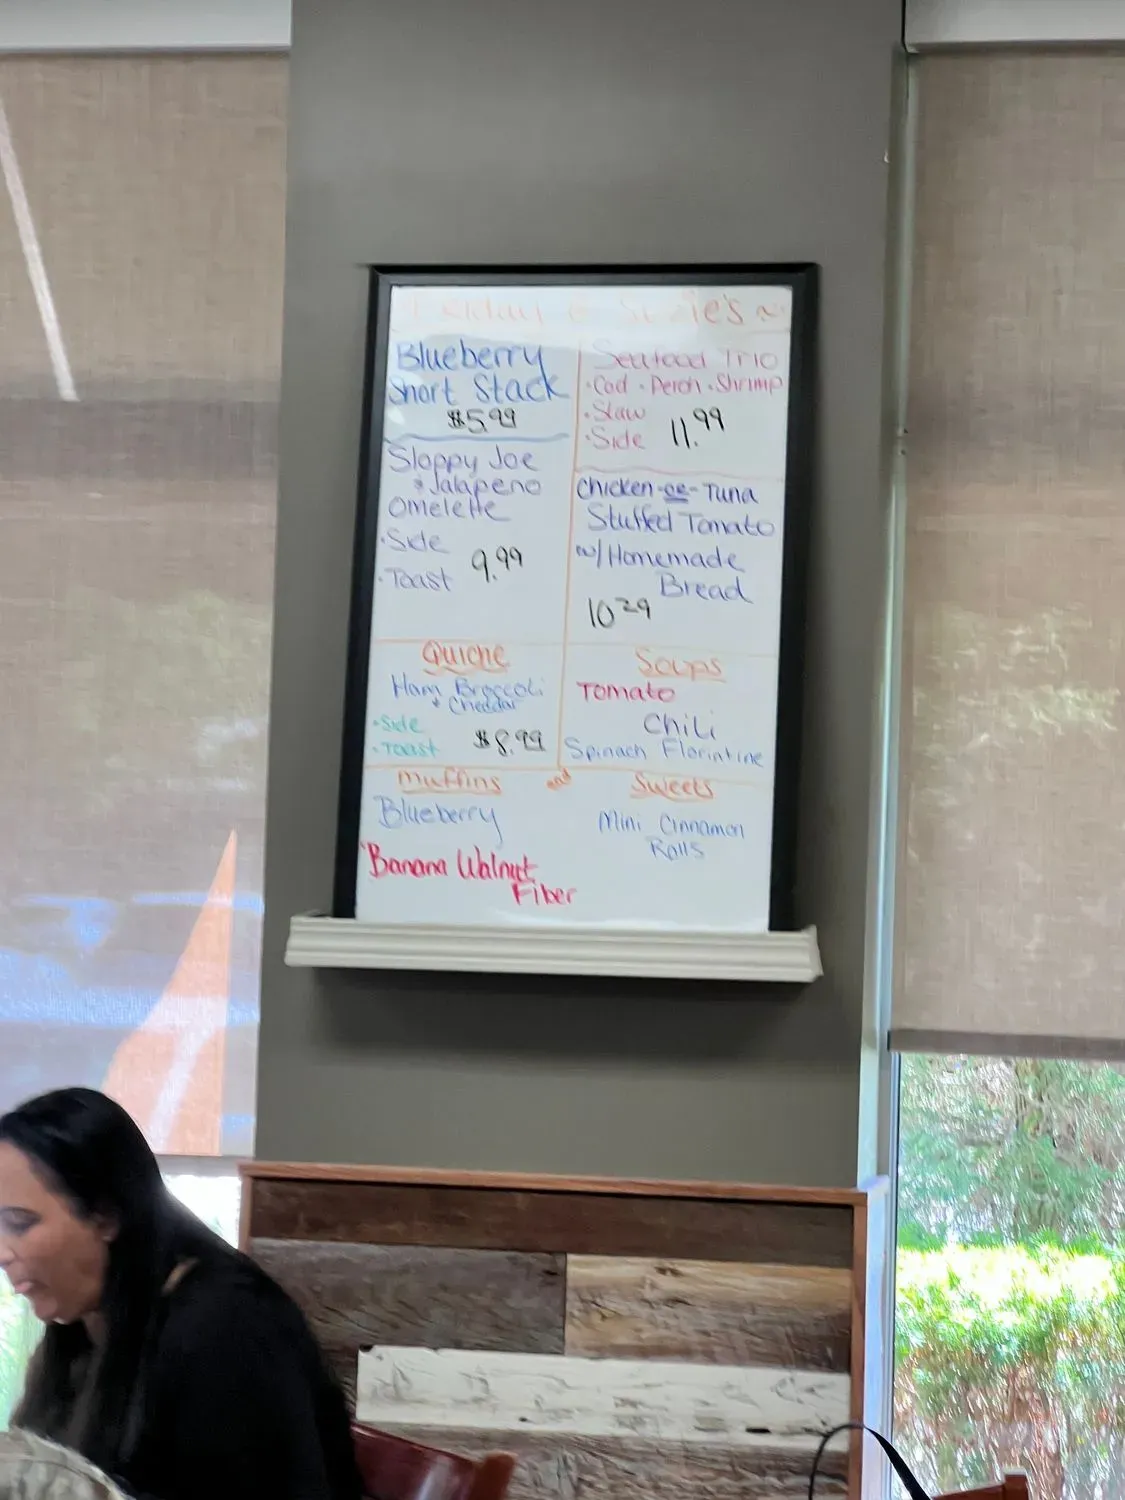 Friday @ Suzie's
Blueberry
Short Stack
$5.99
Sloppy Joe
& Jalapeno
Omelette
·Side
·Toast 9.99
Seafood Trio
·Cod ·Perch ·Shrimp
·Slaw
·Side 11.99
Chicken -or- Tuna
Stuffed Tomato
w/ Homemade
Bread
10 29
Quiche
Ham Broccoli
& Cheddar
·Side
·Toast $8.99
Soups
Tomato
Chili
Spinach Florintine
Muffins and Sweets
Blueberry
Banana Walnut
Fiber
Mini Cinnamon
Rolls